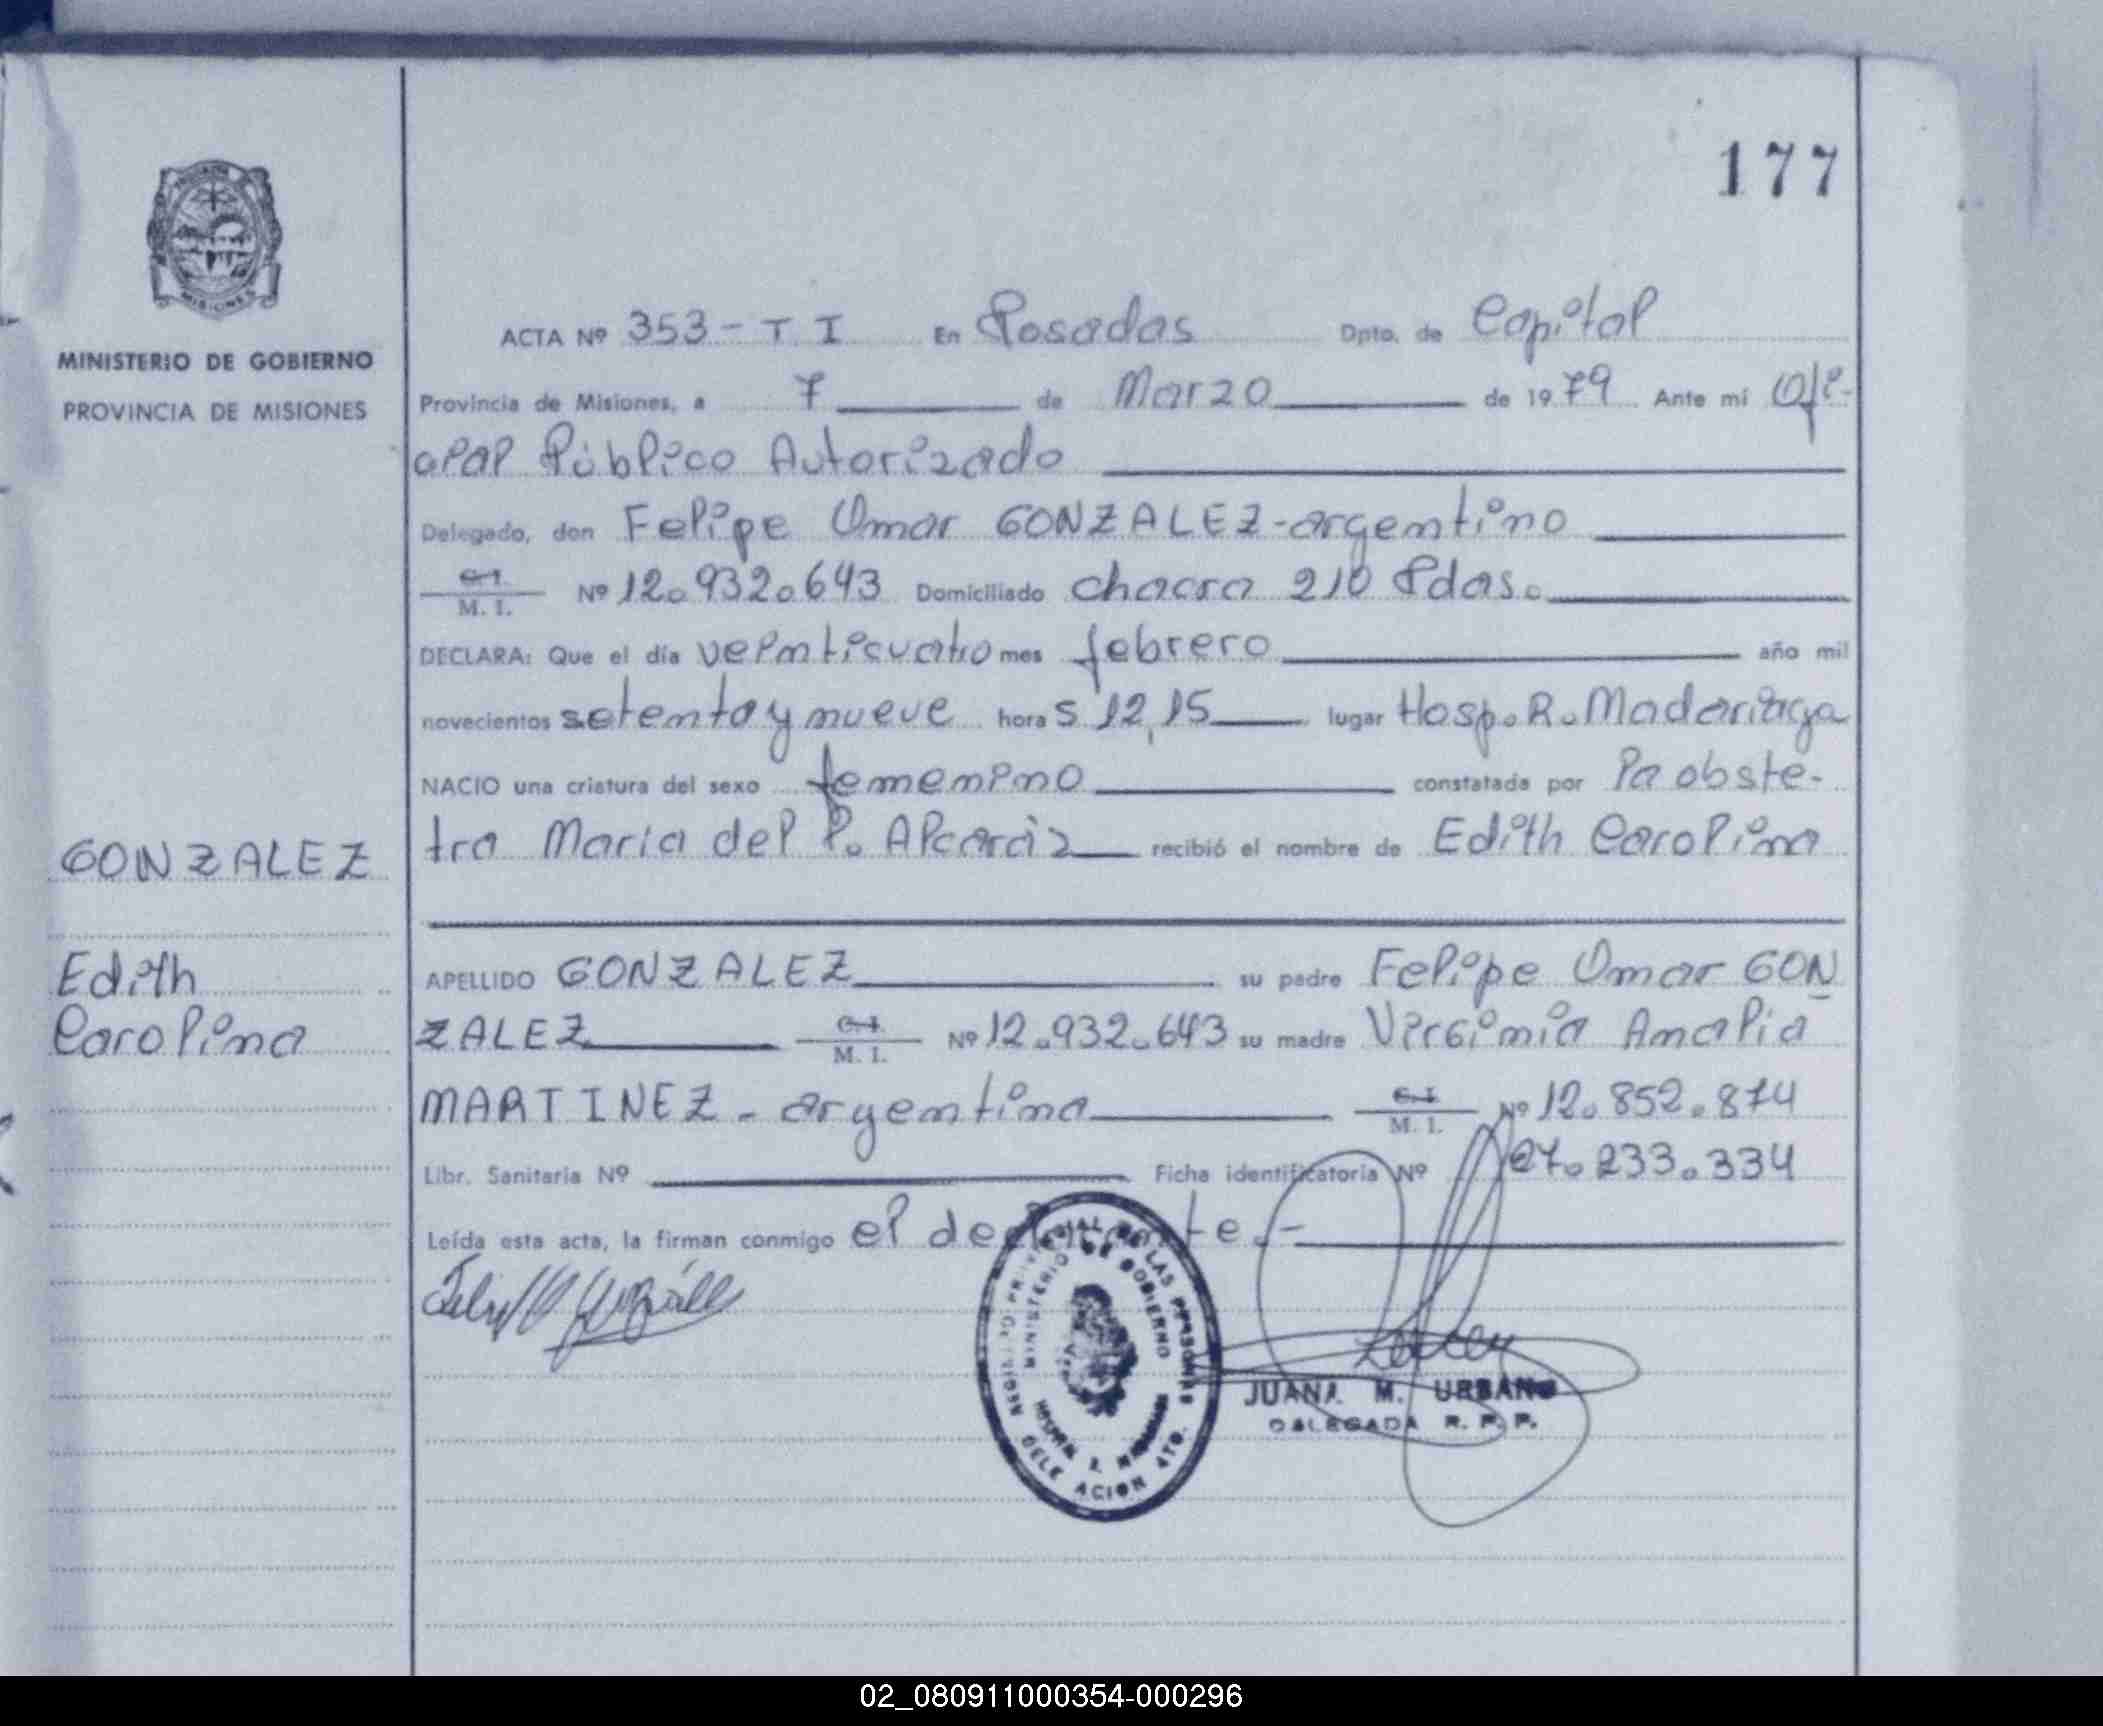 177
MISIONES
MINISTERIO DE GOBIERNO
PROVINCIA DE MISIONES
ACTA Nº 353 - T I En Posadas Dpto. de Capital
Provincia de Misiones, a 7 de Marzo de 1979 Ante mi Ofi-
cial Público Autorizado
Delegado, don Felipe Omar GONZALEZ - argentino
C.I. M. I. Nº 12.932.643 Domiciliado chacra 210 Pdas.
DECLARA: Que el día veinticuatro mes febrero año mil
novecientos setenta y nueve horas 12,15 lugar Hosp. R. Madariaga
NACIO una criatura del sexo femenino constatada por la obste-
tra Maria del P. Alcaráz recibió el nombre de Edith Carolina
GONZALEZ
Edith
Carolina
APELLIDO GONZALEZ su padre Felipe Omar GON
ZALEZ C.I. M. I. Nº 12.932.643 su madre Virginia Analia
MARTINEZ - argentina C.I. M. I. Nº 12.852.874
Libr. Sanitaria Nº Ficha identificatoria Nº 27.233.334
Leída esta acta, la firman conmigo el declarante.-
REGISTRO PROVINCIAL DE LAS PERSONAS
MINISTERIO DE GOBIERNO
DELEGACION 4TO.
JUANA M. URBANO
DALEGADA R. P. P.
02_080911000354-000296